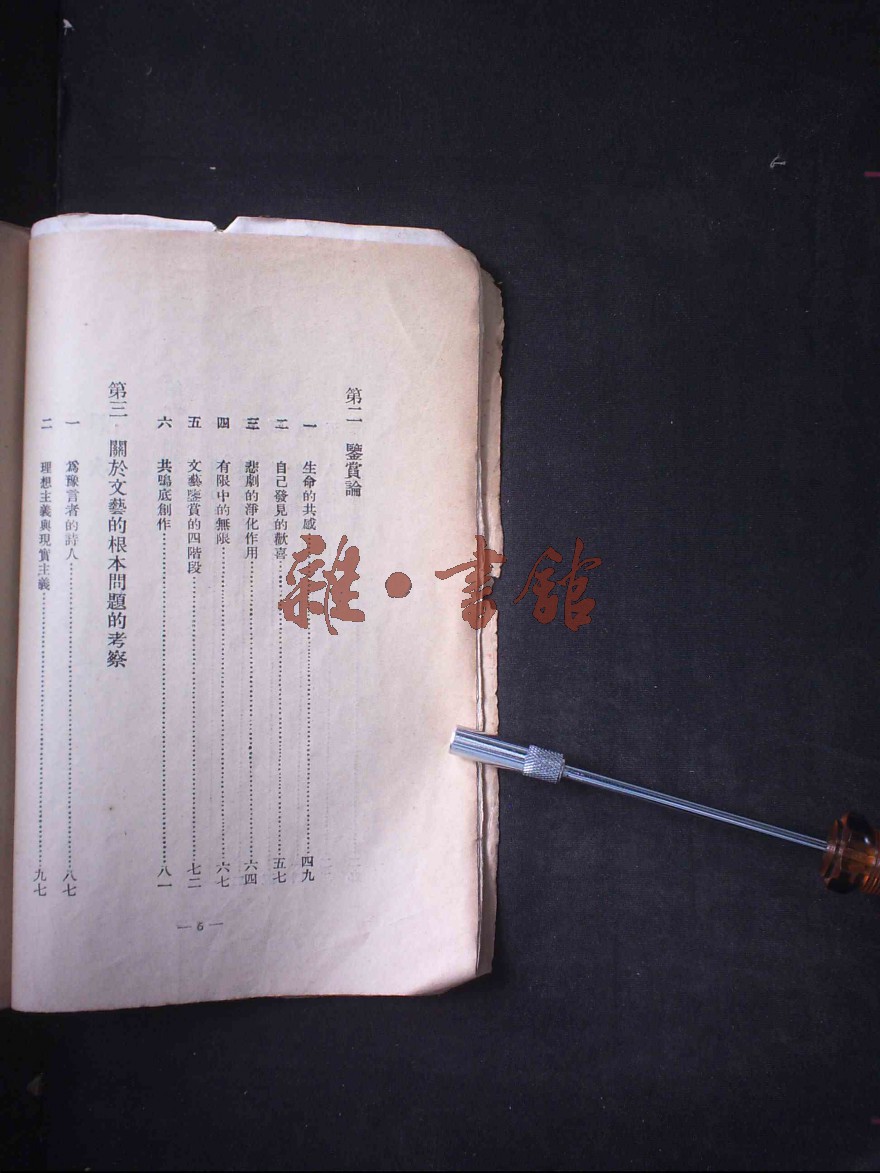 第二　鑒賞論
一　生命的共感……四九
二　自己發見的歡喜……五七
三　悲劇的淨化作用……六四
四　有限中的無限……六七
五　文藝鑒賞的四階段……七二
六　共鳴底創作……八一
第三　關於文藝的根本問題的考察
一　爲豫言者的詩人……八七
二　理想主義與現實主義……九七
— 6 —
雜·書館